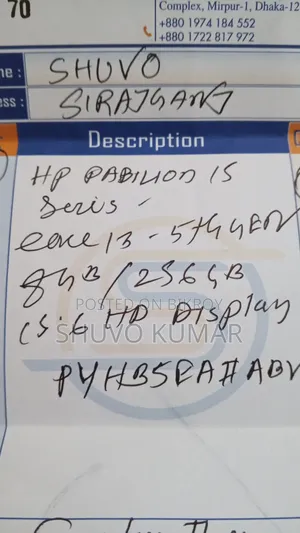 70
Complex, Mirpur-1, Dhaka-12
+880 1974 184 552
+880 1722 817 972
me : SHUVO
ess : SIRAJGANJ
Description
HP PABILION 15
Seris -
core i3 - 5th gen
8GB / 256GB
15.6 HD Display
POSTED ON BIKROY
SHUVO KUMAR